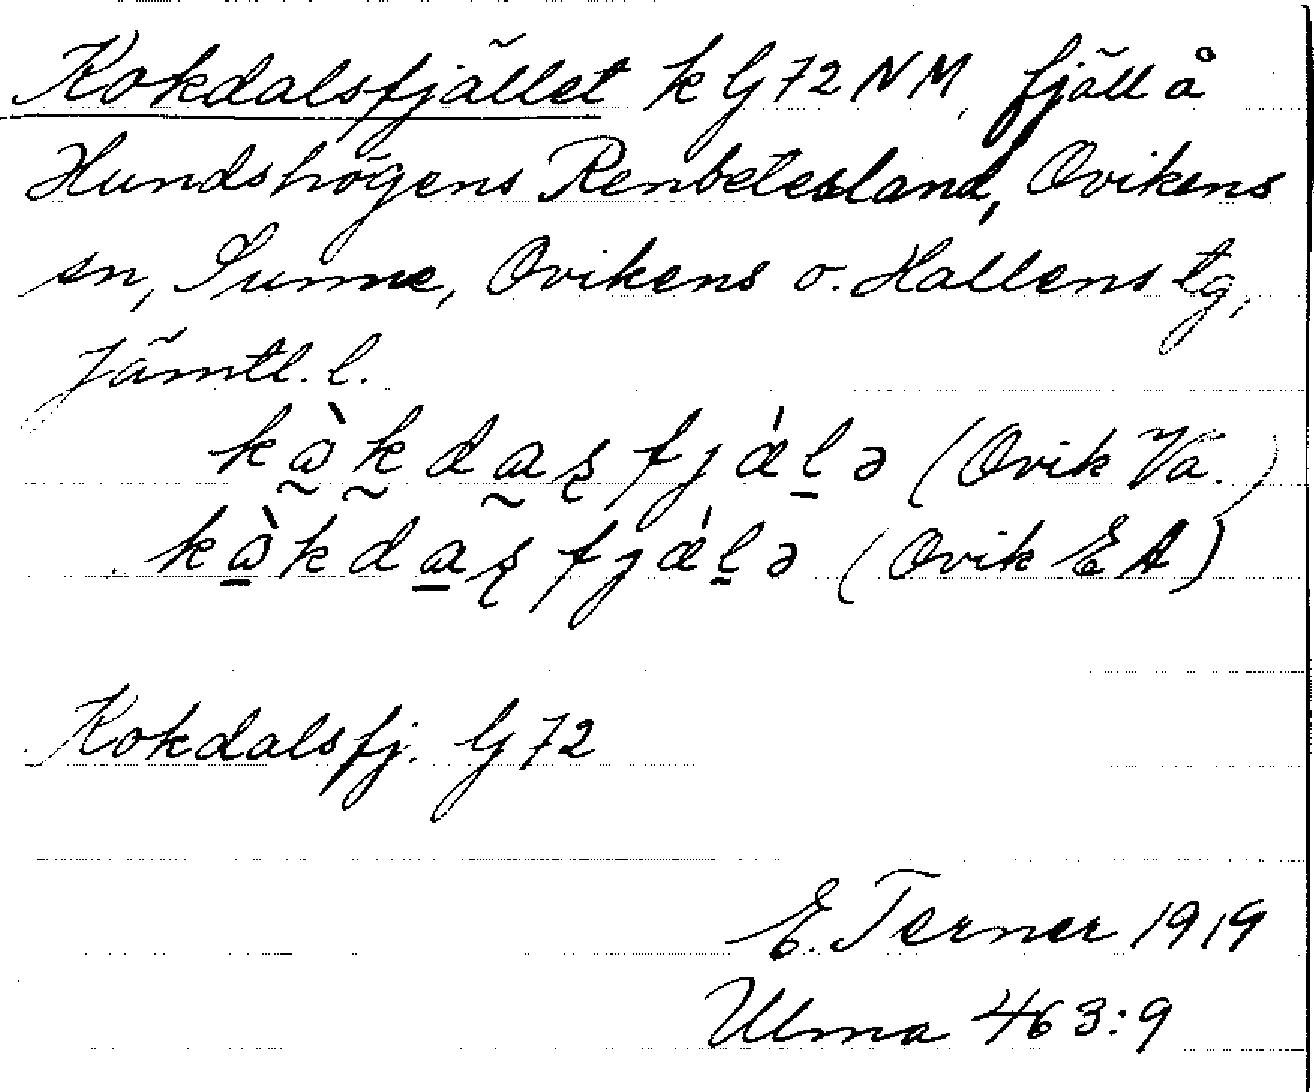 Kokdalsfjället k G 72 NM, fjäll å
Hundshögens Renbetesland, Ovikens
sn, Sunne, Ovikens o. Hallens tg,
Jämtl. l.
kɷ̰̀k̰da̰ʂfjǽl̠ə (Ovik Va.)
kɷ̠̀kda̠ʂfjǽl̠ə (Ovik EA)
Kokdalsfj. G 72
E. Terner 1919
Ulma 463:9